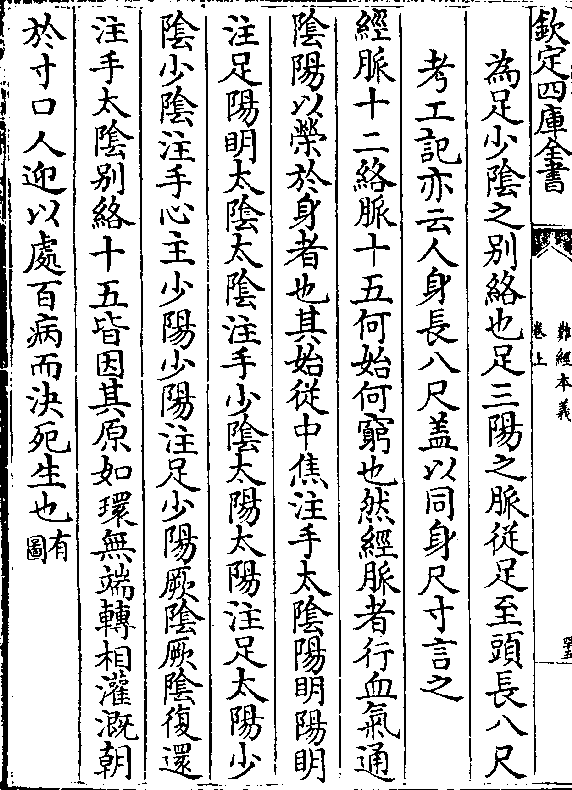 欽定四庫全書
難經本義
卷上
為足少陰之別絡也足三陽之脈從足至頭長八尺
考工記亦云人身長八尺蓋以同身尺寸言之
經脈十二絡脈十五何始何窮也然經脈者行血氣通
陰陽以榮於身者也其始從中焦注手太陰陽明陽明
注足陽明太陰太陰注手少陰太陽太陽注足太陽少
陰少陰注手心主少陽少陽注足少陽厥陰厥陰復還
注手太陰別絡十五皆因其原如環無端轉相灌溉朝
於寸口人迎以處百病而決死生也有圖